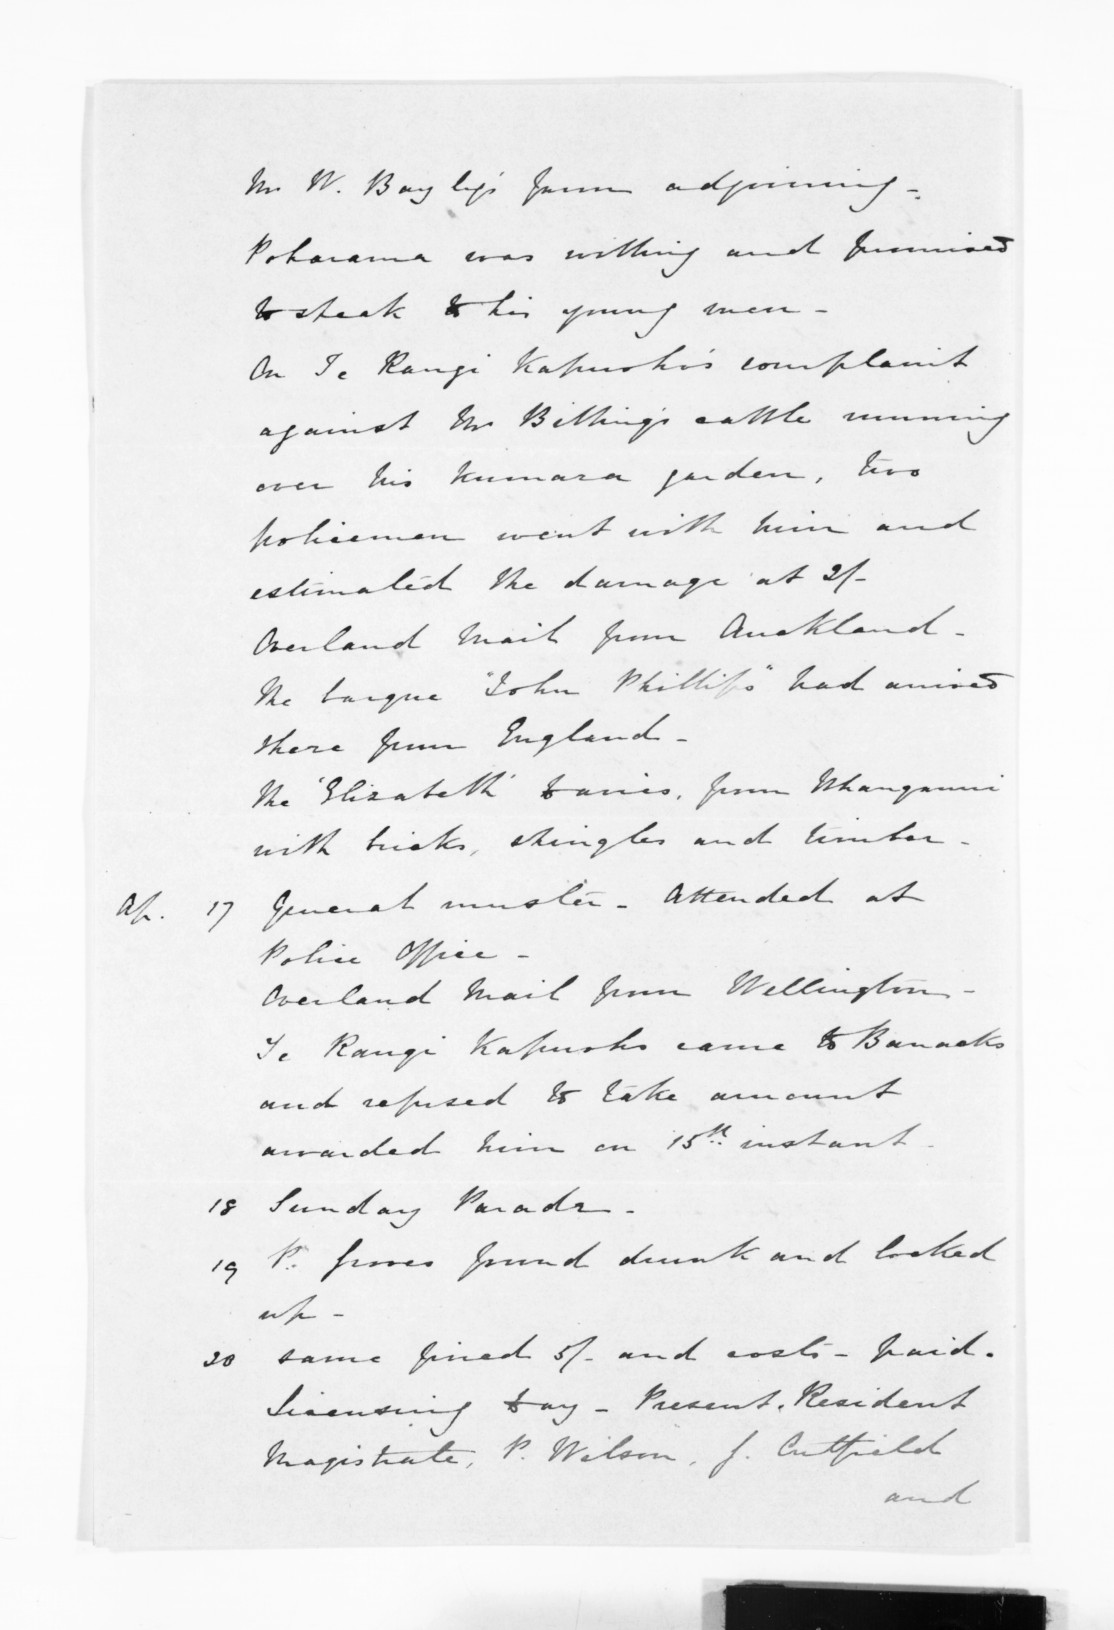 Mr W. Bayly's farm adjoining -
Poharama was willing and promised
to speak to his young men -
On Te Rangi Kapuoho's complaint
against Mr Billing's cattle running
over his kumara garden, two
policemen went with him and
estimated the damage at 2/-
Overland Mail from Auckland -
The barque "John Phillips" had arrived
there from England -
The 'Elizabeth' Davies, from Whanganui
with bricks, shingles and timber -
Ap. 17 General muster - Attended at
Police Office -
Overland Mail from Wellington -
Te Rangi Kapuoho came to Barracks
and refused to take amount
awarded him on 15th instant -
18 Sunday Parade -
19 P. found drunk and locked
up -
20 same fined 5/- and costs - paid.
Licensing Day - Present. Resident
Magistrate, P. Wilson, G. Cutfield
and